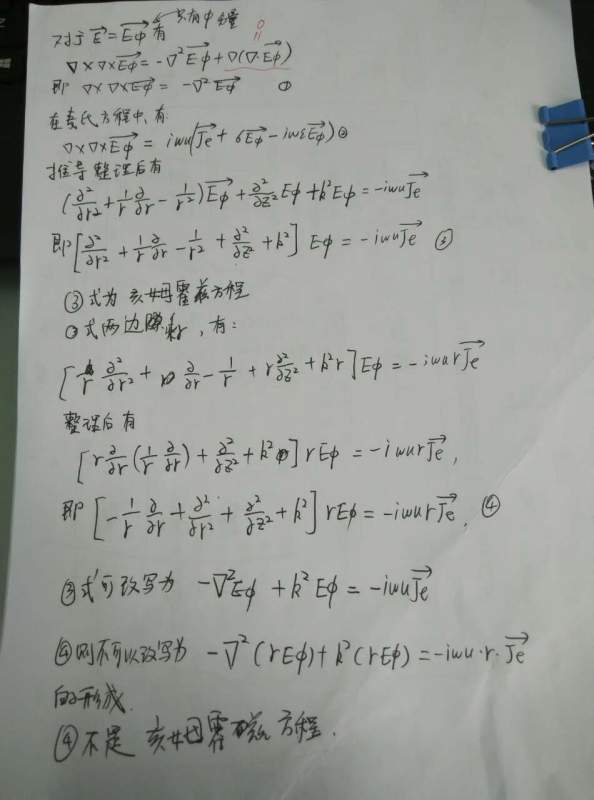 对于 E⃗ = E⃗φ 有 只有φ分量
∇×∇×E⃗φ = -∇²E⃗φ + ∇(∇·E⃗φ) = 0
即 ∇×∇×E⃗φ = -∇²E⃗φ ①
在麦氏方程中,有:
∇×∇×E⃗φ = iwu(J⃗e + 6E⃗φ - iwεE⃗φ) ②
推导整理后有
(∂²/∂r² + 1/r ∂/∂r - 1/r²)E⃗φ + ∂²/∂z² Eφ + k²Eφ = -iwuJ⃗e
即 [∂²/∂r² + 1/r ∂/∂r - 1/r² + ∂²/∂z² + k²] Eφ = -iwuJ⃗e ③
③式为亥姆霍兹方程
式两边乘r,有:
[r ∂²/∂r² + ∂/∂r - 1/r + r ∂²/∂z² + k²r] Eφ = -iwurJ⃗e
整理后有
[r ∂/∂r (1/r ∂/∂r) + ∂²/∂z² + k²] rEφ = -iwurJ⃗e,
即 [-1/r ∂/∂r + ∂²/∂r² + ∂²/∂z² + k²] rEφ = -iwurJ⃗e, ④
③式可改写为 -∇²Eφ + k²Eφ = -iwuJ⃗e
④则不可以改写为 -∇²(rEφ) + k²(rEφ) = -iwu·r·J⃗e
的形式.
④不是亥姆霍磁方程.